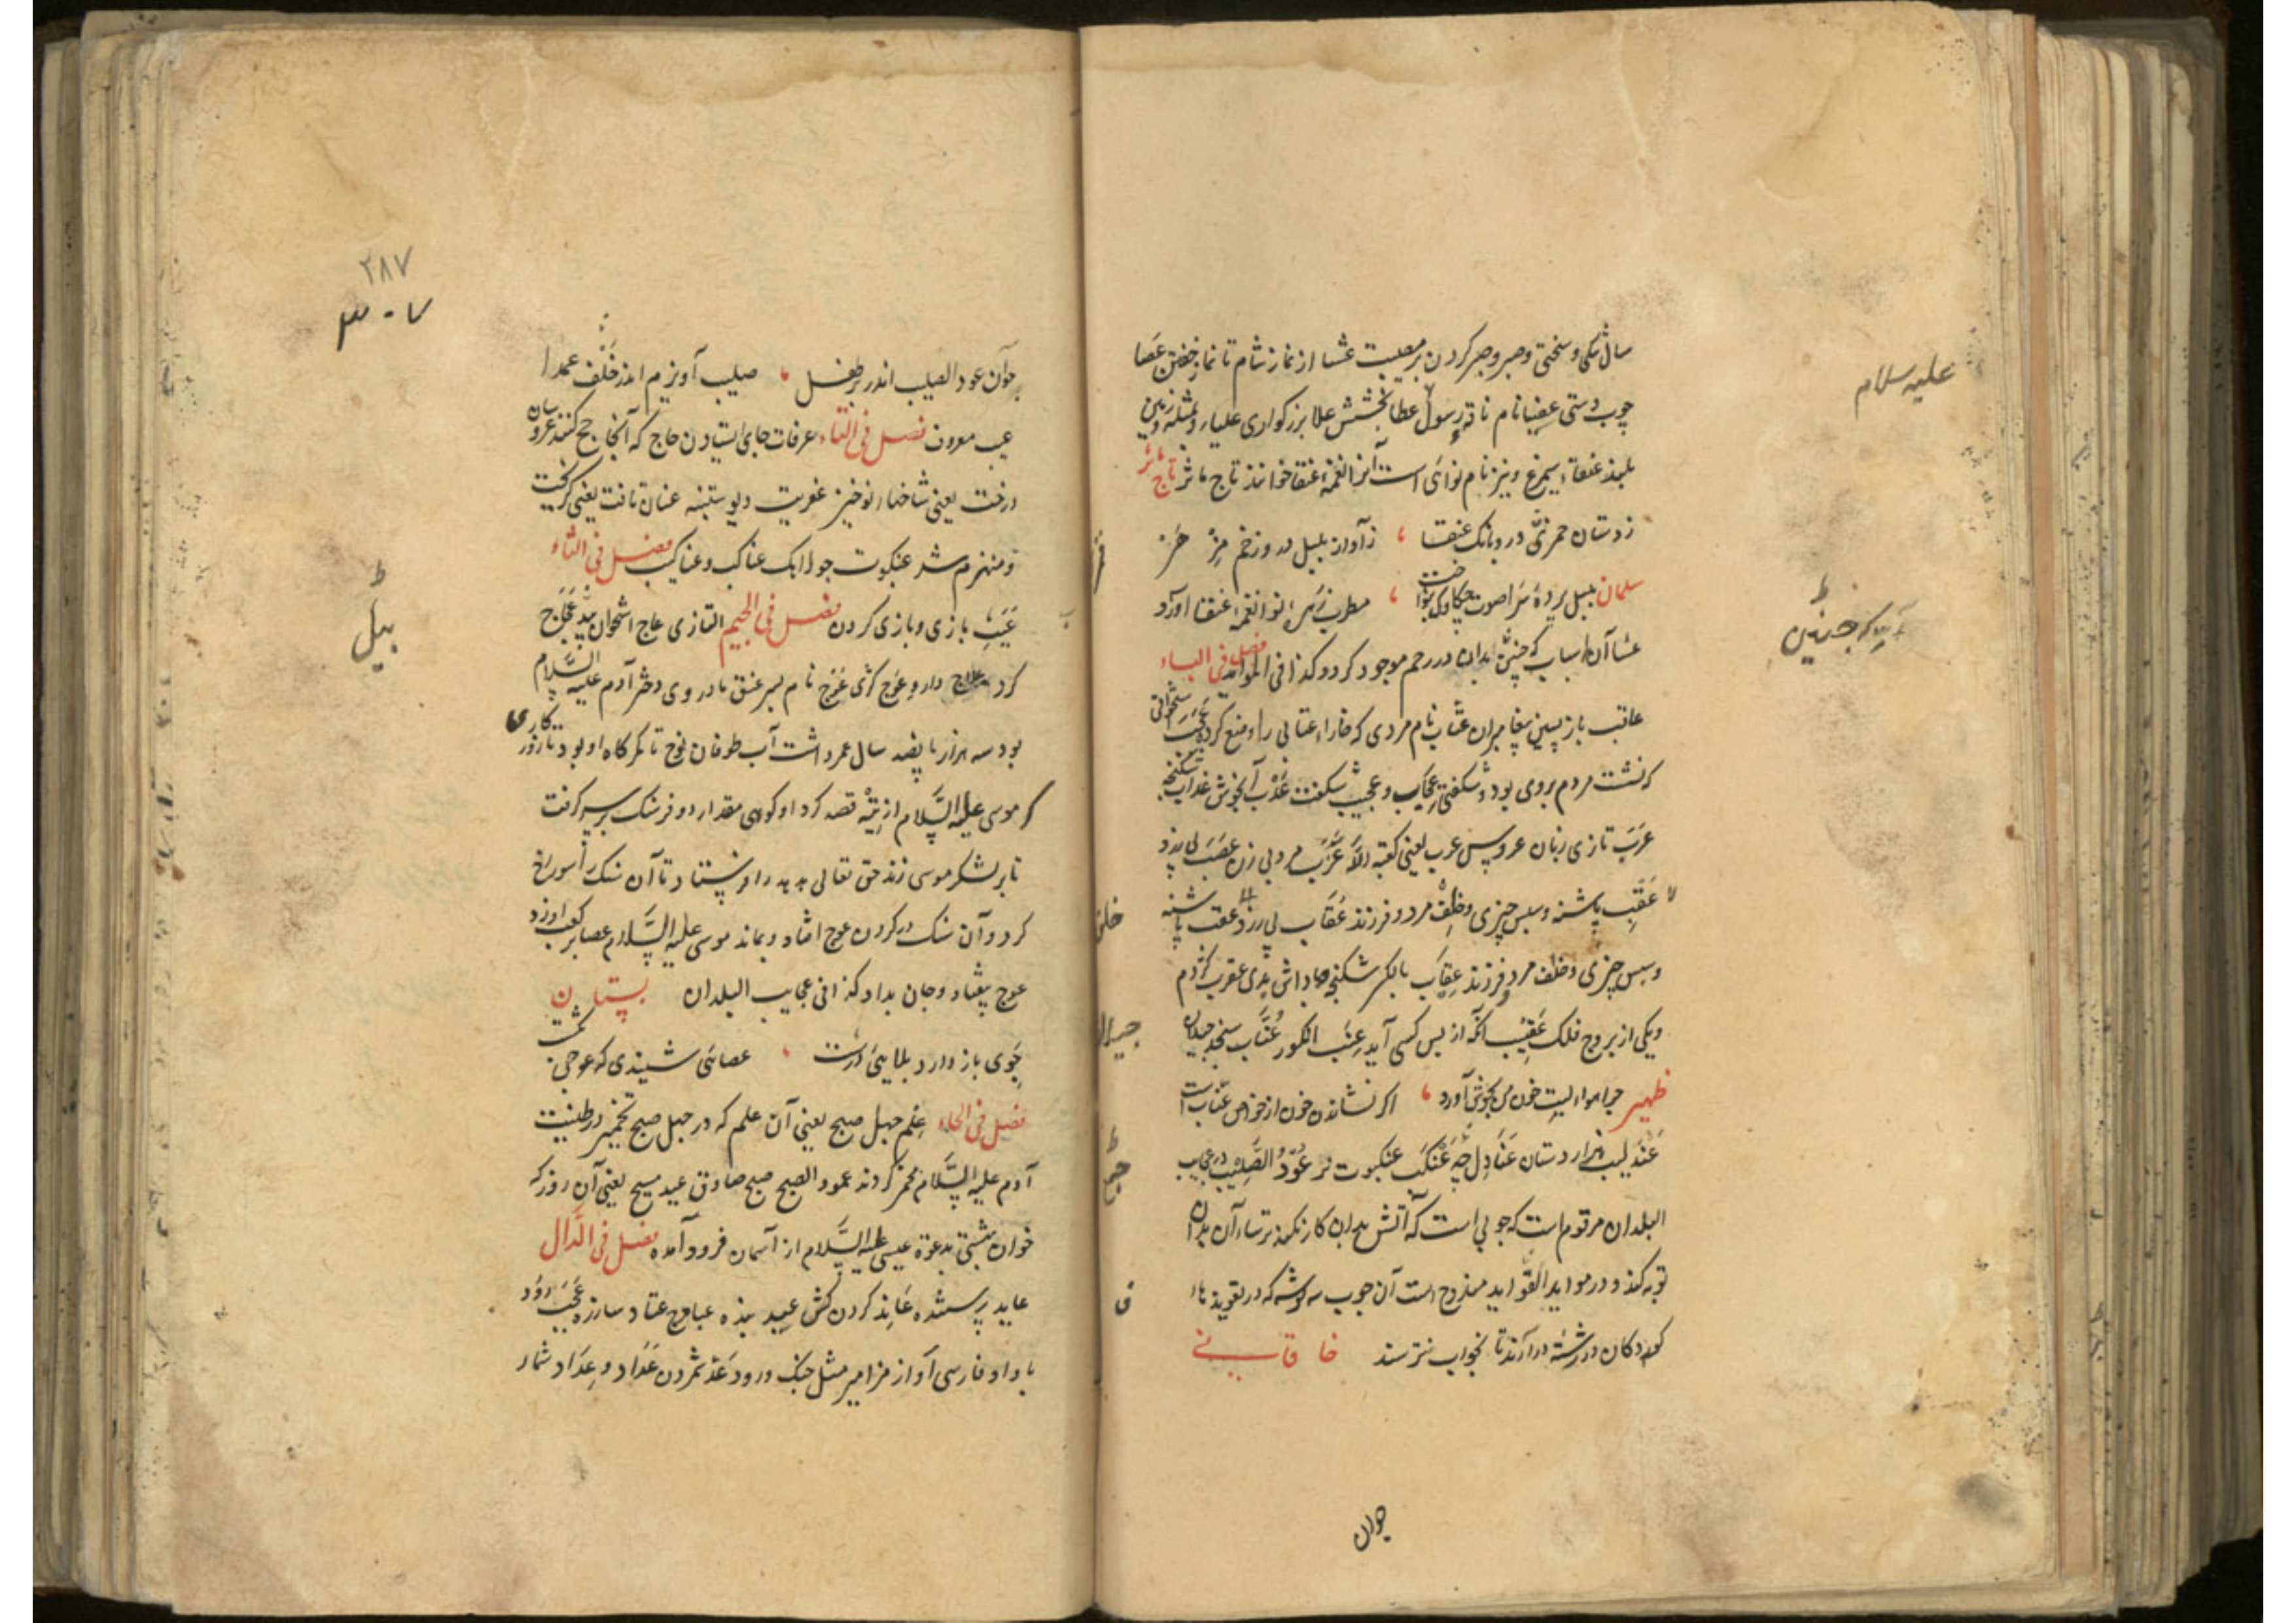 علیه سلام
سال تنکی و سختی و صبر و صبر کردن بر مصیبت عشا از نماز شام تا نماز خفتن عصا
چوب دستی عضبا نام ناقه رسول عطا بخشش علا بزرکواری علیا
بلند عنقاء سیمرغ و نیز نام نوائی است آنرا نغمهٔ عنقا خوانند تاج ماثر تاج ماثر
ز دستان قمری در و بانک عنقا ، ز آواز بلبل در و زخم مزهر
سلمان بلبل پردهٔ سرا صوت چکاوک بنوا ، مطرب نغمهٔ عنقا آورد
عشا آن اسباب که جنین بدان در رحم موجود کردد کذا فی الموائد فصل فی الباء
عاقب باز پسین پیغامبران عتاب نام مردی که خاراء عتابی را وضع کرده عجب
که نشت مردم بروی بود و شکفتی عجایب و عجیب شکفت عذب آب خوش عذاب شکنجه
عرب تازی زبان عروس عرب یعنی کعبه الله عزب مرد بی زن عصب پی زرد
عقب پاشنه و سپس چیزی و خلف مرد و فرزند عقاب
و سپس چیزی و خلف مرد و فرزند عقاب بالکسر شکنجه و پاداش بدی عقرب کژدم
و یکی از بروج فلک عقیب آنکه از پس کسی آید عنب انکور عناب سنجد جیلان
ظهیر چرا هوا لبت خون من بجوش آورد ، اکر نشاندن خون از خواص عناب است
عندلیب هزاردستان عنادل ج عنکب عنکبوت نر عود الصلیب در عجایب
البلدان مرقوم است که چوبی است که آتش بدان کار نکند ترساء آن بدان
توبه کند و در مواید الفواید مندرج است آن چوب سه کوشه که در تعویذها
کودکان در رشته در آرند تا بخواب نترسند خاقانی
چوآن
۲۸۷
۳۰۷
چوآن عود الصلیب اندر بر طفل ، صلیب آویزم اندر حلق عمدا
عیب معروف فصل فی التاء عرفات جای ایستادن حاج که آنجا حج کنند عروسان
درخت یعنی شاخهاء نوخیز عفریت دیو ستنبه عنان تافت یعنی کریخت
و منهزم شد عنکبوت جولاهک عناکب و عناکیب فصل فی الثاء
عبث بازی و بازی کردن فصل فی الجیم التازی عاج استخوان پیل عجاج
کرد علاج دارو عوج کژی عوج نام پسر عنق مادر وی دختر آدم علیه السلام
بود سه هزار و پانصد سال عمر داشت آب طوفان نوح تا کمرکاه او بود تا روزکاری
که موسی علیه السلام از تیه قصد کرد او کوهی مقدار دو فرسنک بر سر کرفت
تا بر لشکر موسی زند حق تعالی هدهد را فرستاد تا آن سنک را سوراخ
کرد و آن سنک در کردن عوج افتاد و بماند موسی علیه السلام عصا بر کعب او زد
عوج بیفتاد و جان بداد کذا فی عجایب البلدان بستان
جوی باز دارد بلایی درشت ، عصائی شنیدی که عوجی بکشت
فصل فی الحاء علم چهل صبح یعنی آن علم که در چهل صبح تخمیر در طینت
آدم علیه السلام مخمر کردند عمود الصبح صبح صادق عید مسیح یعنی آن روز که
خوان بهشتی بدعوة عیسی علیه السلام از آسمان فرود آمده فصل فی الدال
عابد پرستنده عاند کردن کش عبید بنده عباد ج عتاد سازره عجب رود
با واو فارسی آواز مزامیر مثل چنک و رود عد شمردن عداد و عداد شمار